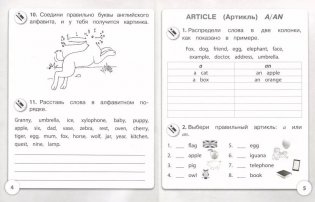 10. Соедини правильно буквы английского
алфавита, и у тебя получится картинка.
11. Расставь слова в алфавитном по-
рядке.
Granny, umbrella, ice, xylophone, baby, puppy,
apple, six, dad, vase, zebra, rest, oven, cherry,
tiger, egg, mum, fox, horse, wolf, jar, year, kitchen,
quest, nine, lamp.
4
ARTICLE (Артикль) A/AN
1. Распредели слова в две колонки,
как показано в примере.
Fox, dog, friend, egg, elephant, face,
example, doctor, address, umbrella.
a an
a cat an apple
a box an orange
2. Выбери правильный артикль: a или
an.
1. ___ flag 5. ___ egg
2. ___ apple 6. ___ iguana
3. ___ pig 7. ___ telephone
4. ___ owl 8. ___ book
5